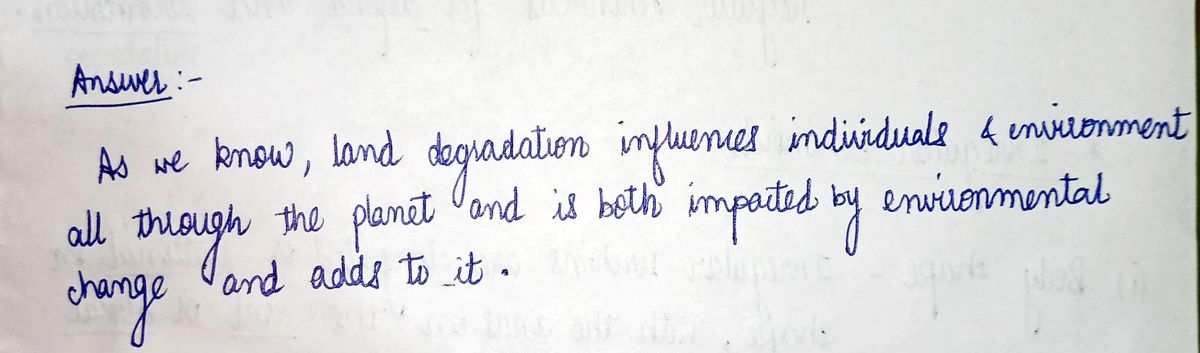 Answer :-
As we know, land degradation influences individuals & environment
all through the planet and is both impacted by environmental
change and adds to it.